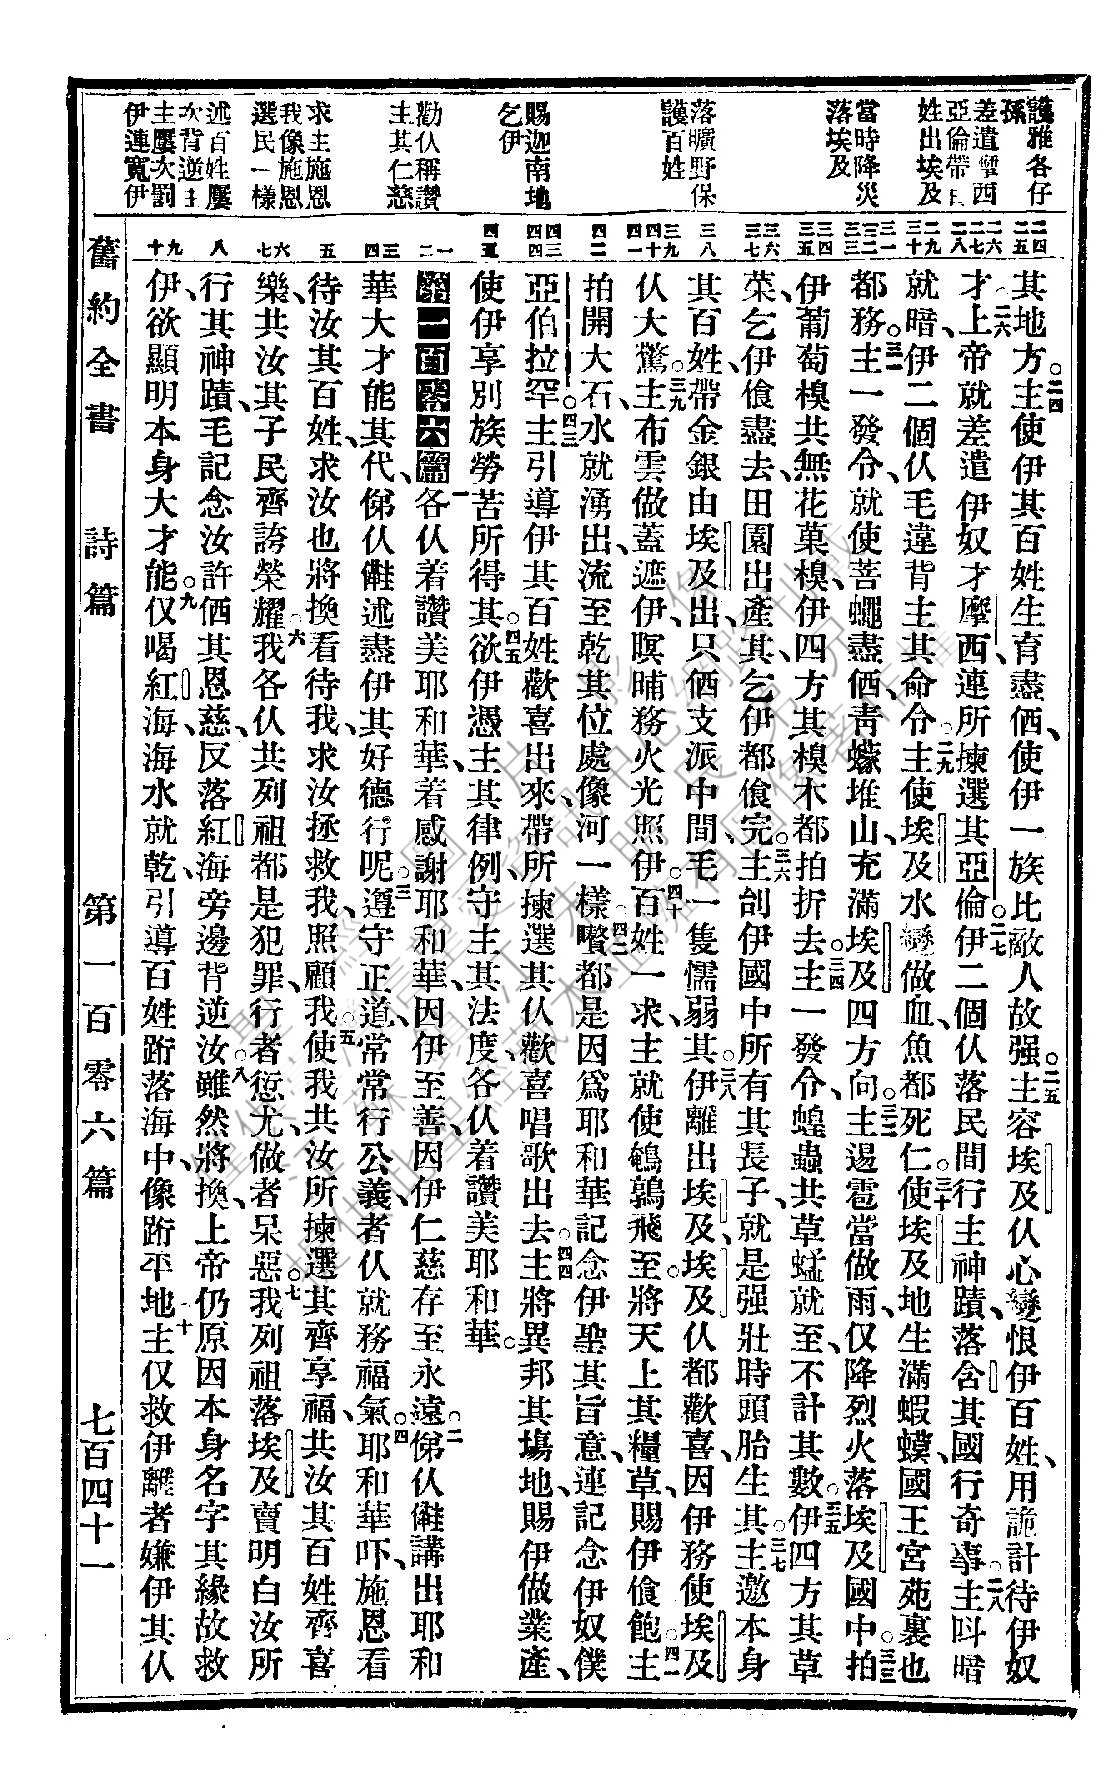 護雅各仔
孫
差遣摩西
亞倫帶百
姓出埃及
當時降災
落埃及
落曠野保
護百姓
賜迦南地
乞伊
勸仈稱讚
主其仁慈
求主施恩
我像施恩
選民一樣
述百姓屢
次背逆主
主屢次罰
伊連寬伊
二四
二五
二六
二七
二八
二九
三十
三一
三二
三三
三四
三五
三六
三七
三八
三九
四十
四一
四二
四三
四四
四五
一
二
三
四
五
六
七
八
九
十
其地方。二四主使伊其百姓生育盡価、使伊一族比敵人故强。二五主容埃及仈心變恨伊百姓、用詭計待伊奴
才。二六上帝就差遣伊奴才摩西、連所揀選其亞倫。二七伊二個仈落民間行主神蹟、落含其國行奇事。二八主叫暗
就暗、伊二個仈毛違背主其命令。二九主使埃及水變做血、魚都死仁。三十使埃及地生滿蝦蟆、國王宮苑裏也
都務。三一主一發令、就使菩蠅盡価、靑蠓堆山、充滿埃及四方向。三二主遏雹當做雨、仅降烈火落埃及國中。三三拍
伊葡萄模共無花菓模、伊四方其模木都拍折去。三四主一發令、蝗蟲共草蜢就至、不計其數。三五伊四方其草
菜、乞伊飡盡去、田園出產其、乞伊都飡完。三六主刣伊國中所有其長子、就是强壯時頭胎生其。三七主邀本身
其百姓、帶金銀由埃及出、只価支派中間、毛一隻懦弱其。三八伊離出埃及、埃及仈都歡喜、因伊務使埃及
仈大驚。三九主布雲做蓋遮伊、暝晡務火光照伊。四十百姓一求、主就使鵪鶉飛至、將天上其糧草賜伊飡飽。四一主
拍開大石、水就湧出、流至乾其位處、像河一樣。四二嚽都是因爲耶和華記念伊聖其旨意、連記念伊奴僕
亞伯拉罕。四三主引導伊其百姓歡喜出來、帶所揀選其仈歡喜唱歌出去。四四主將異邦其塲地、賜伊做業產、
使伊享別族勞苦所得其。四五欲伊憑主其律例、守主其法度、各仈着讚美耶和華。
第一百零六篇 一各仈着讚美耶和華、着感謝耶和華、因伊至善、因伊仁慈存至永遠。二俤仈儺講出耶和
華大才能其代、俤仈儺述盡伊其好德行呢。三遵守正道、常常行公義者仈就務福氣。四耶和華吓、施恩看
待汝其百姓、求汝也將換看待我、求汝拯救我、照顧我。五使我共汝所揀選其齊享福、共汝其百姓齊喜
樂、共汝其子民齊誇榮耀。六我各仈共列祖都是犯罪、行者愆尤、做者呆惡。七我列祖落埃及賣明白汝所
行其神蹟、毛記念汝許価其恩慈、反落紅海旁邊背逆汝。八雖然將換、上帝仍原因本身名字其緣故救
伊、欲顯明本身大才能。九仅喝紅海、海水就乾、引導百姓跻落海中、像跻平地。十主仅救伊離者嫌伊其仈
舊約全書 詩篇 第一百零六篇 七百四十一